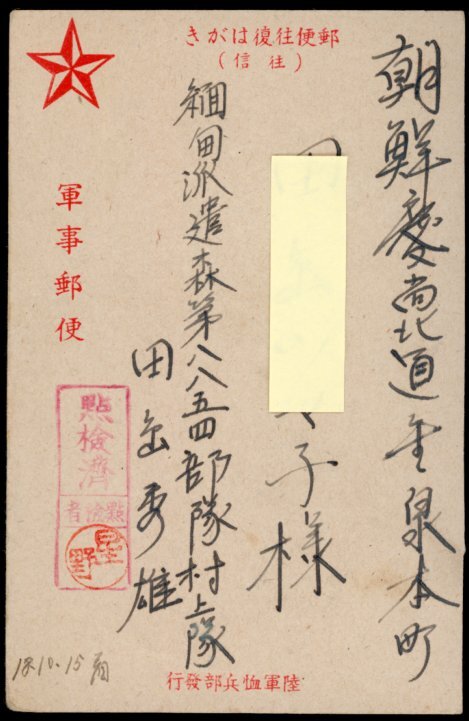 郵便往復はがき
(往信)
朝鮮慶尚北道金泉本町
田
子様
緬甸派遣森第八八五四部隊村上隊
田 秀雄
軍事郵便
點檢濟
點檢者
星野
18.10.15
陸軍恤兵部發行